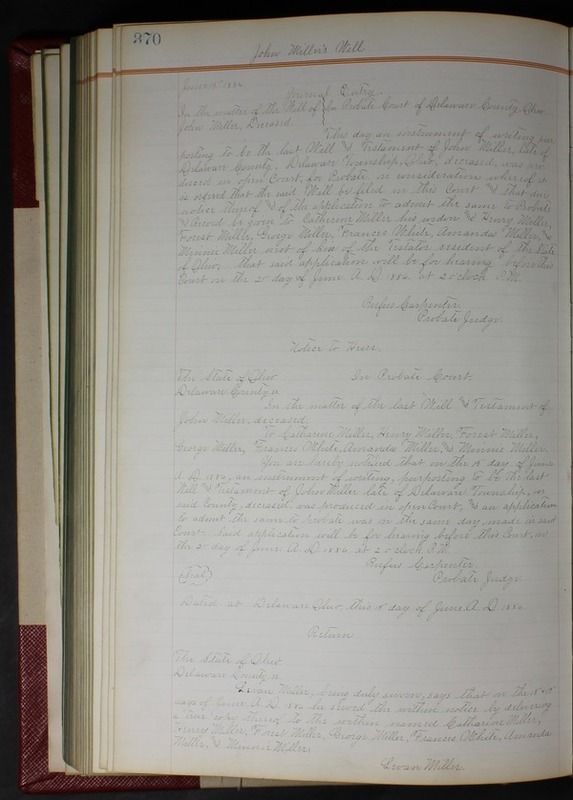 370
John Miller's Will
Journal Entry.
In the matter of the Will of } In Probate Court of Delaware County, Ohio
John Miller, Deceased
This day an instrument of writing pur
porting to be the last Will and Testament of John Miller, late of
Delaware County, Delaware Township, Ohio, deceased, was pro
duced in open Court, for Probate, in consideration whereof it
is ordered that the said Will be filed in this Court and that due
notice thereof and of the application to admit the same to Probate
and Record be given to Catherine Miller his widow and Henry Miller,
Forest Miller, George Miller, Frances White, Amanda Miller, and
Minnie Miller next of kin of the Testator resident of the State
of Ohio; that said application will be for hearing before this
Court on the day of June A. D. 1886 at 2 o'clock P.M.
Rufus Carpenter
Probate Judge.
Notice to Heirs.
The State of Ohio In Probate Court.
Delaware County, ss
In the matter of the last Will and Testament of
John Miller, deceased.
To Catharine Miller, Henry Miller, Forest Miller,
George Miller, Frances White, Amanda Miller, and Minnie Miller.
You are hereby notified that on the day of June
A. D. 1886, an instrument of writing, purporting to be the last
Will and Testament of John Miller late of Delaware Township, in
said County, deceased, was produced in open Court, and an application
to admit the same to probate was on the same day, made in said
Court. Said application will be for hearing before this Court, on
the day of June, A. D. 1886 at 2 o'clock P.M.
Rufus Carpenter
(Seal) Probate Judge.
Dated at Delaware Ohio, this day of June, A. D. 1886
Return
The State of Ohio
Delaware County, ss
Miller, being duly sworn, says that on the
days of June A. D. 1886 he served the within notice by delivering
a true copy thereof to the within named Catharine Miller,
Henry Miller, Forest Miller, George Miller, Frances White, Amanda
Miller, and Minnie Miller.
Miller.